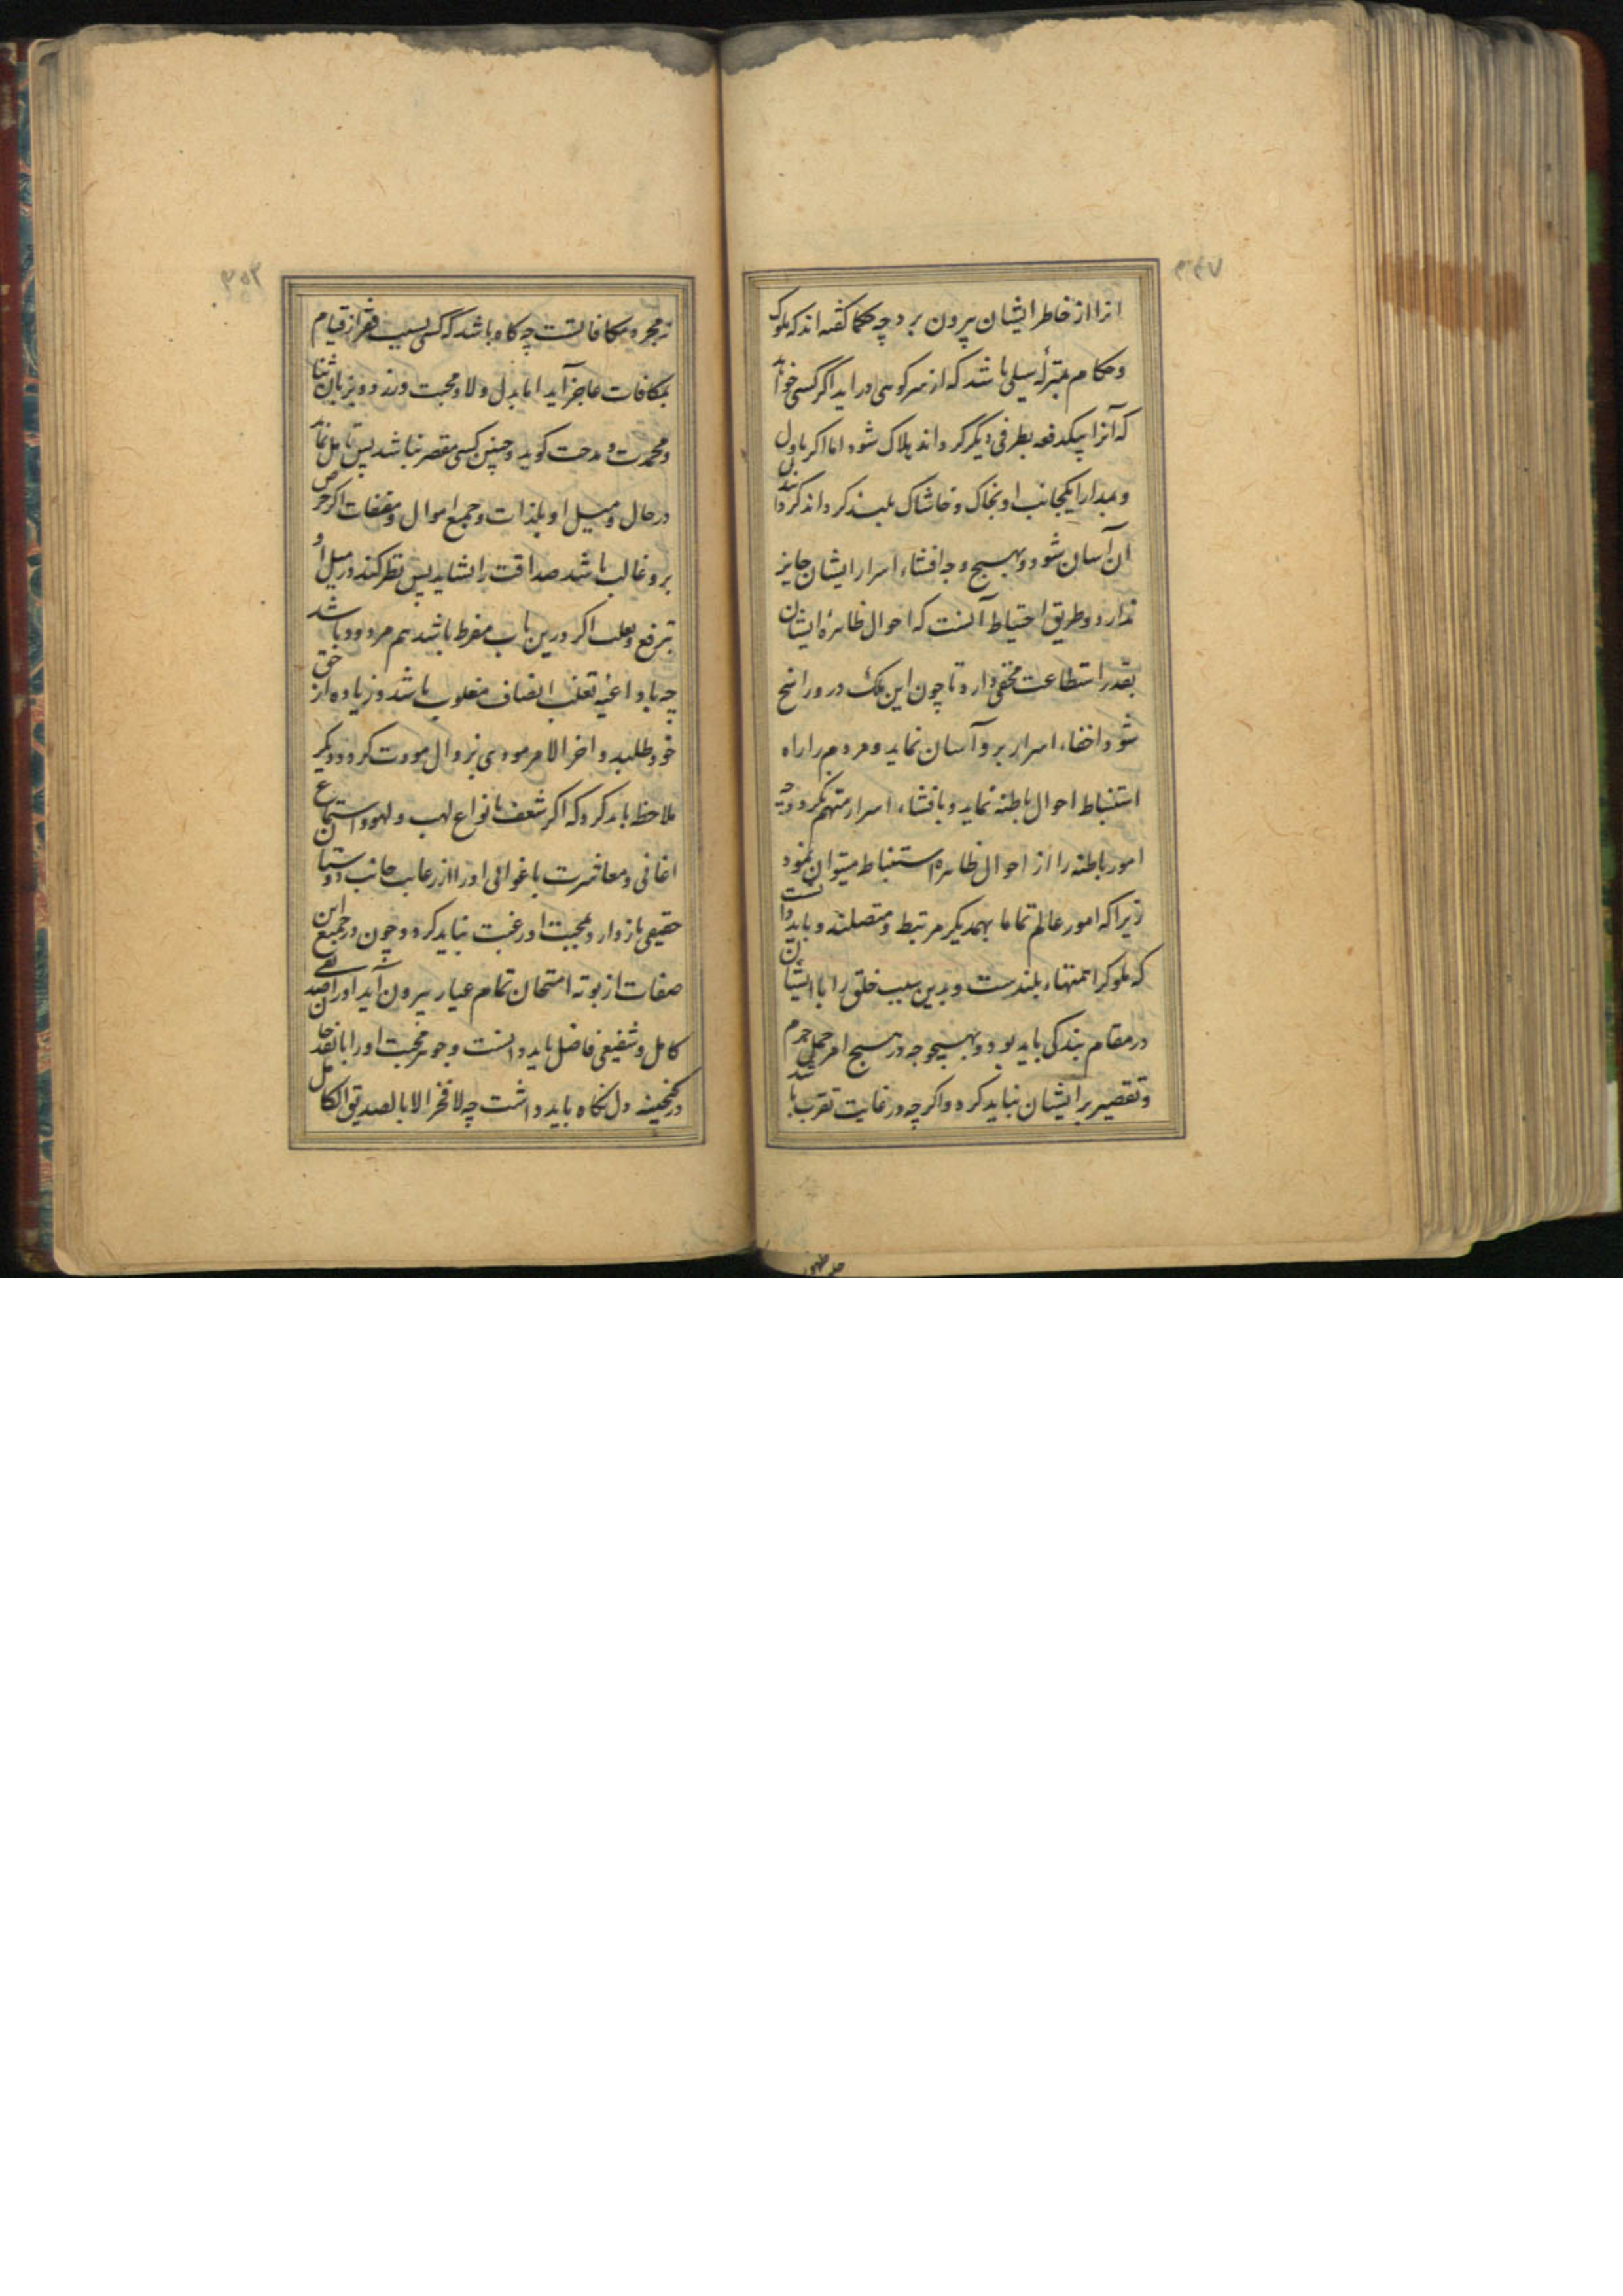 ۳۴۷
انرا از خاطر ایشان بیرون برد چه حکما کفته اند که ملوک
و حکام بمنزلهٔ سیلی باشد که از سر کوهی در آید اکر کسی خواهد
که آنرا بیکدفعه بطرفی دیکر کرداند هلاک شود اما اکر باول
و مدارا یکجانب او بخاک و خاشاک بلند کرداند کردانیدن
آن آسان شود و بهیچ وجه افشاء اسرار ایشان جایز
ندارد و طریق احتیاط آنست که احوال ظاهرهٔ ایشان
بقدر استطاعت مخفی دارد تا چون این ملکه در و راسخ
شود اخفاء اسرار برو آسان نماید و مردم را راه
استنباط احوال باطنه نماید و بافشاء اسرار متهم نکردد چه
امور باطنه را از احوال ظاهره استنباط میتوان نمود
زیرا که امور عالم تماما بهمدیکر مرتبط و متصلند و باید دانست
که ملوکرا همتهاء بلندست و بدین سبب خلق را با ایشان
در مقام بندکی باید بود و بهیچوجه در هیچ امر حمل جرم
و تقصیر بر ایشان نباید کرد و اکر چه در غایت تقرب باشد
۳۵۲
نه مجرد مکافاتست چه کاه باشد که کسی بسبب فقر از قیام
بمکافات عاجز آید اما بدل ولا و محبت ورزد و بزبان ثنا
و محمدت و مدحت کوید و چنین کسی مقصر نباشد پس تامل نماید
در حال و میل او بلذات و جمع اموال و مقتنیات اکر حرص
برو غالب باشد صداقت را نشاید پس نظر کند در میل او
بترفع و تغلب اکر درین باب مفرط باشد هم مردود باشد
چه با داعیهٔ تغلب انصاف مغلوب باشد و زیاده از حق
خود طلبد و اخر الامر مودی بزوال مودت کردد و دیکر
ملاحظه باید کرد که اکر شعف بانواع لهب و لهو و استماع
اغانی و معاشرت با غوانی او را از رعایت جانب دوستان
حقیقی باز دارد بمحبت او رغبت نباید کرد و چون در جمیع این
صفات از بوته امتحان تمام عیار بیرون آید او را صدیقی
کامل و شفیقی فاضل باید دانست و جوهر محبت او را با نقد جان
در کنجینه دل نکاه باید داشت چه لا فخر الا بالصدیق الکامل